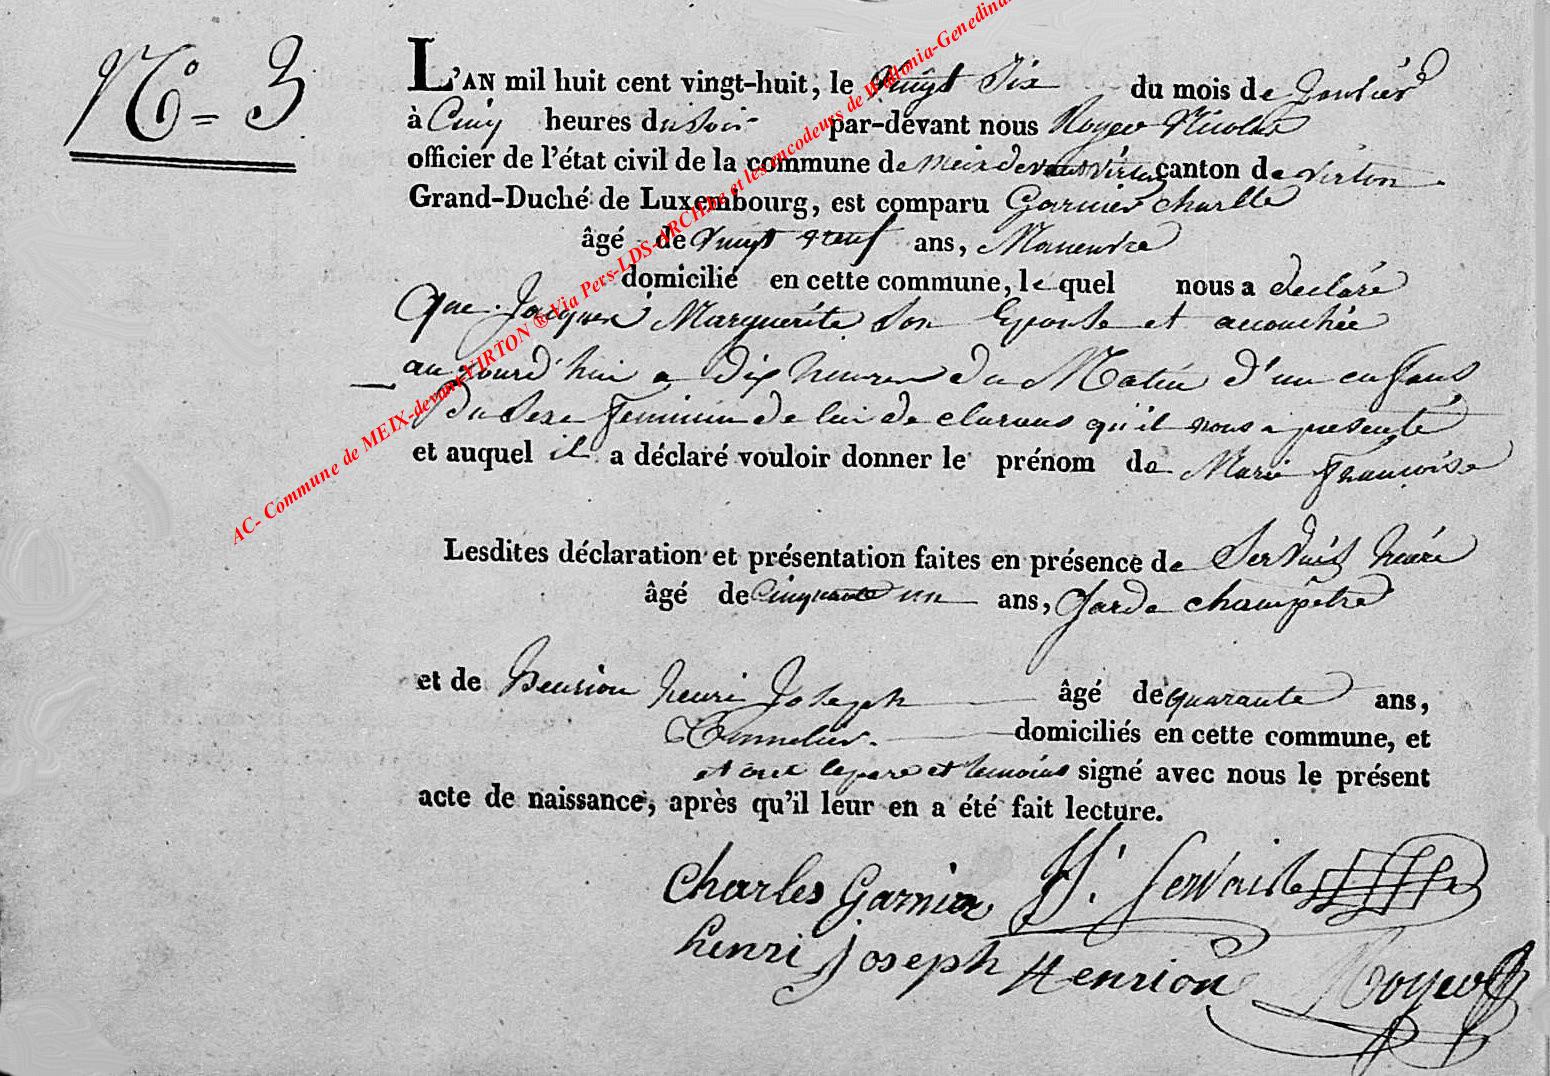 N° = 3
L'AN mil huit cent vingt-huit, le vingt Six du mois de Janvier
à Cinq heures du Soir par-devant nous Royer Nicolas
officier de l'état civil de la commune de Meix devant Virton canton de virton
Grand-Duché de Luxembourg, est comparu Garnier charlle
âgé de vingt neuf ans, Maneuvre
domicilié en cette commune, le quel nous a declaré
que Jacques Marguerite Son Epouse et accouchée
aujourd'hui a Dix heures du Matin d'un enfans
Du Sexe Feminin de lui de clarans qu'il nous a presenté
et auquel il a déclaré vouloir donner le prénom de Marie Françoise
Lesdites déclaration et présentation faites en présence de Servais henri
âgé de Cinquante un ans, Garde champêtre
et de henrion henri Joseph âgé de quarante ans,
Tonnelier. domiciliés en cette commune, et
et ont le pere et temoins signé avec nous le présent
acte de naissance, après qu'il leur en a été fait lecture.
charles Garnier H. Servais
henri joseph Henrion Royer
AC- Commune de MEIX-devant-VIRTON ® Via Pers-LDS-ARCH.be et les encodeurs de Wallonia-Genedinar